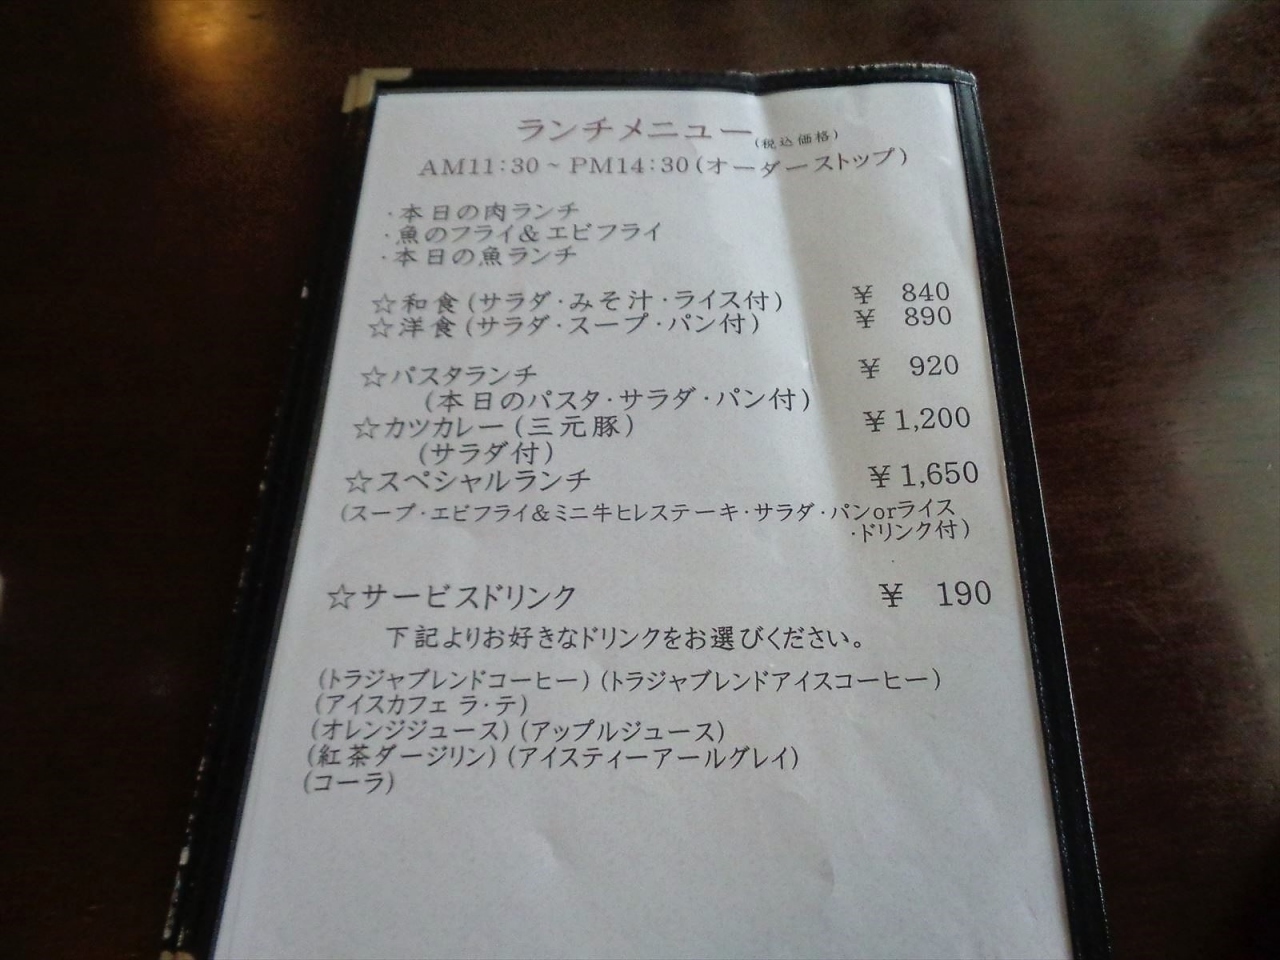 ランチメニュー(税込価格)
AM11:30~PM14:30(オーダーストップ)
・本日の肉ランチ
・魚のフライ&エビフライ
・本日の魚ランチ
☆和食(サラダ・みそ汁・ライス付) ¥ 840
☆洋食(サラダ・スープ・パン付) ¥ 890
☆パスタランチ ¥ 920
(本日のパスタ・サラダ・パン付)
☆カツカレー(三元豚) ¥1,200
(サラダ付)
☆スペシャルランチ ¥1,650
(スープ・エビフライ&ミニ牛ヒレステーキ・サラダ・パンorライス
・ドリンク付)
☆サービスドリンク ¥ 190
下記よりお好きなドリンクをお選びください。
(トラジャブレンドコーヒー)(トラジャブレンドアイスコーヒー)
(アイスカフェ ラ・テ)
(オレンジジュース)(アップルジュース)
(紅茶ダージリン)(アイスティーアールグレイ)
(コーラ)